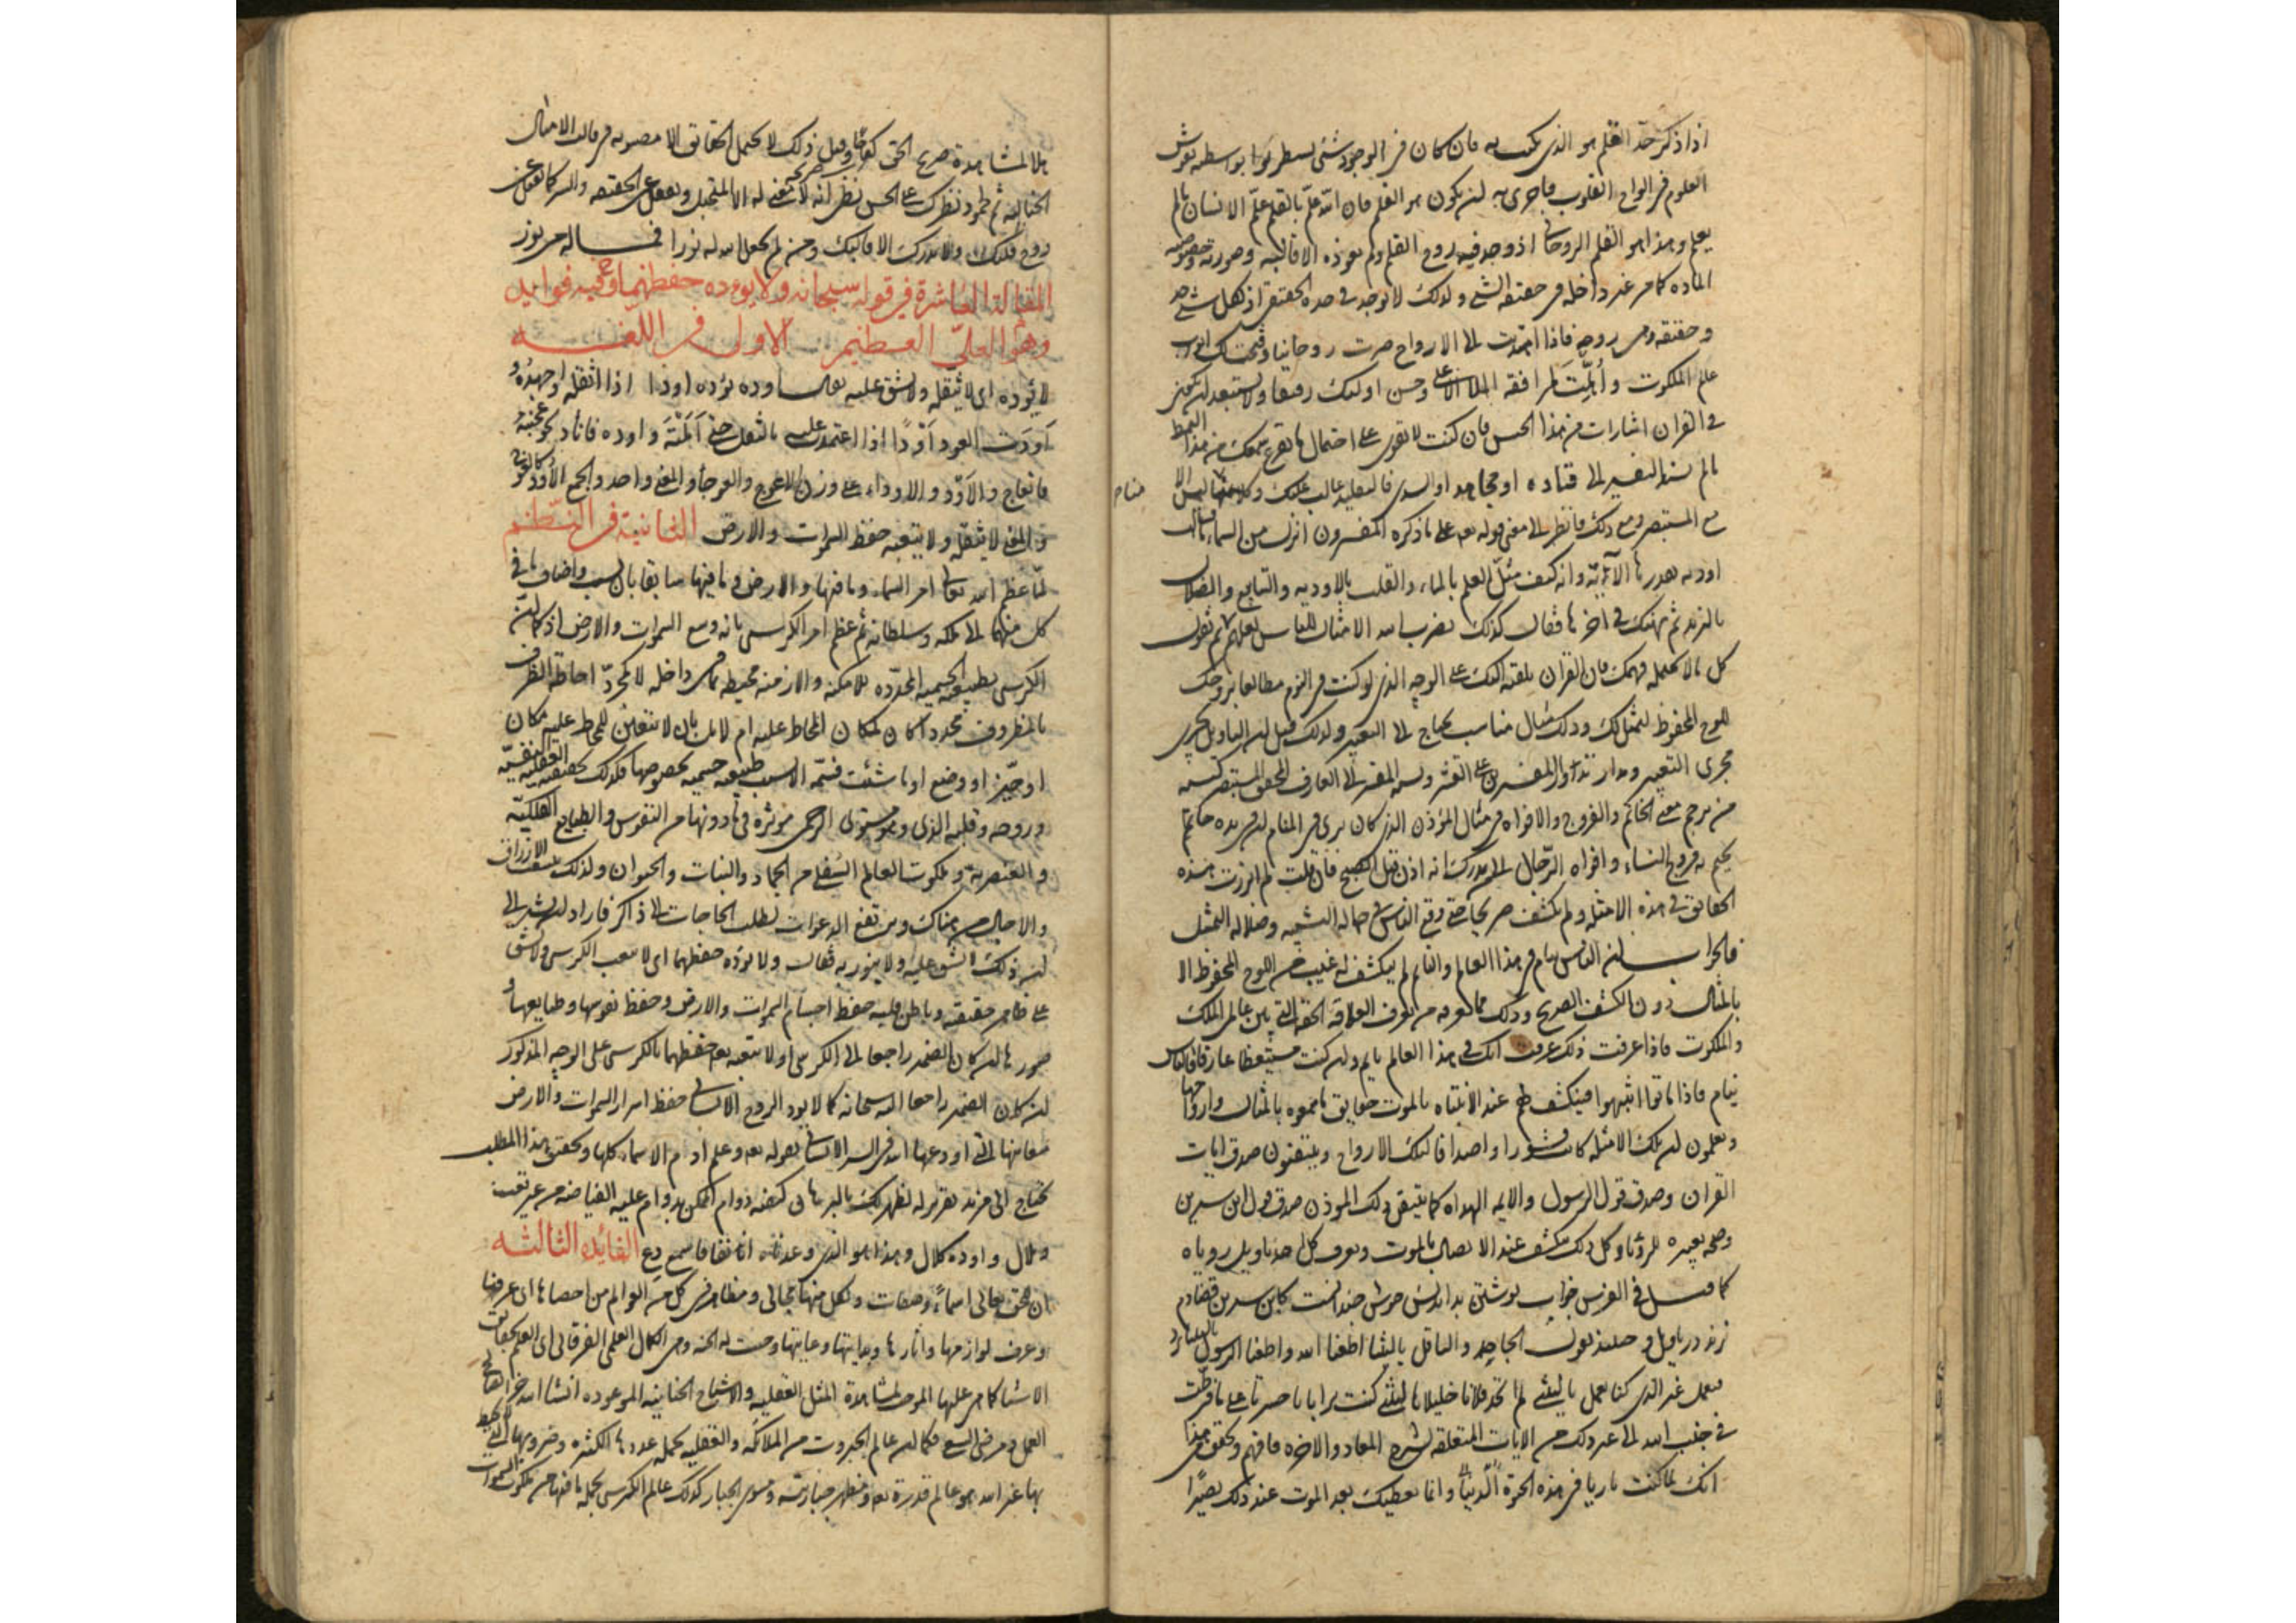 اذا ذكر حد القلم هو الذي يكتب به فان كان في الوجود شئ يسطر بواسطته نقوش
العلوم في الواح القلوب فاحرى به ان يكون هو القلم فان الله علم بالقلم علم الانسان ما لم
يعلم وهذا هو القلم الروحاني اذ وجد فيه روح القلم ولم يعوزه الا قالبه وصورته
المادة كما مر غير داخله في حقيقة الشئ ولذلك لا يوجد في حده الحقيقي اذ لكل شئ حد
وحقيقة وهي روحه فاذا اهتديت الى الارواح صرت روحانيا وفتحت لك ابواب
علم الملكوت وأهّلت لمرافقة الملأ الاعلى وحسن اولئك رفيقا ولا تستبعد ان يكون
في القران اشارات من هذا الجنس فان كنت لا تقوى على احتمال ما يقرع سمعك من هذا النمط
ما لم تسند التفسير الى قتاده او مجاهد او السدي فالتقليد غالب عليك وكلامنا ليس الا
مع المستبصر ومع ذلك فانظر الى معنى قوله تعه على ما ذكره المفسرون انزل من السماء ماء فسالت
اودية بقدرها الآية وانه كيف مثّل العلم بالماء والقلب بالاودية والينابيع والضلال
بالزبد ثم نبهك في اخرها فقال كذلك يضرب الله الامثال للناس لعلهم ثم نقول
كل ما لا يحتمله فهمك فان القران يلقيه اليك على الوجه الذي لو كنت في النوم مطالعا بروحك
اللوح المحفوظ لتمثل لك وذلك بمثال مناسب يحتاج الى التعبير ولذلك قيل ان التاويل يجري
مجرى التعبير ومدار تدوار المفسرين على القشر ونسبة المفسر الى العارف المحقق المستبصر كنسبة
من ترجم معنى الخاتم والفروج والافواه في مثال المؤذن الذي كان يرى في المنام ان في يده خاتم
يختم به فروج النساء وافواه الرجال الى الذي يدرك انه اذن قبل الصبح فان قلت لم ابرزت هذه
الحقايق في هذه الامثلة ولم تكشف صريحا حتى وقع الناس في جهالة التشبيه وضلالة التمثيل
فالجواب ان الناس نيام في هذا العالم والنائم لم ينكشف له غيب من اللوح المحفوظ الا
بالمثال دون الكشف الصريح وذلك مما يعرفه من يعرف العلاقة الحقة التي بين عالمي الملك
والملكوت فاذا عرفت ذلك عرفت انك في هذا العالم نايم وان كنت مستيقظا عارفا فالناس
نيام فاذا ماتوا انتبهوا فينكشف لهم عند الانتباه بالموت حقايق ما سمعوه بالمثال وارواحها
ويعلمون ان تلك الامثلة كانت قشورا واصدافا لتلك الارواح ويتيقنون صدق ايات
القران وصدق قول الرسول والايمة الهداة كما تيقن ذلك الموذن صدق قول ابن سيرين
وصحة تعبيره للرؤيا وكل ذلك ينكشف عند الاتصال بالموت ويعرف كل احد تاويل روياه
كما قيل في الفرس
وحينئذ يقول الجاحد والغافل يا ليتنا اطعنا الله واطعنا الرسول
فنعمل غير الذي كنا نعمل يا ليتني لم اتخذ فلانا خليلا يا ليتني كنت ترابا يا حسرتا على ما فرطت
في جنب الله الى غير ذلك من الايات المتعلقة بشرح المعاد والاخرة فافهم وتحقق هذا
انك لما كنت نائما في هذه الحيوة الدنيا وانما تعطيك بعد الموت عند ذلك بصيرًا
هلا لمشاهدة صريح الحق كفاحًا وقبل ذلك لا تحتمل الحقائق الا مصبوبة في قالب الامثال
الخيالية ثم لجمود نظرك على الحس تظن انه لا معنى له الا المتخيل وتغفل عن الحقيقة والسر كما تغفل عن
روح قلبك ولا تدرك الا قالبك ومن لم يجعل الله له نورا فما له من نور
المقالة العاشرة في قوله سبحانه ولا يؤده حفظهما وفيه فوايد
وهو العلي العظيم الاولى في اللغة
لا يؤده اى لا يثقله ولا يشق عليه يقال اوده يؤده اودا اذا اثقله واجهده و
اَوَدَت العود اَوْدًا اذا اعتمدت عليه بالثقل حتى اَمَلْتَه واوده فانأد كعجته
فانعاج والاود والاوداء على وزن الاعوج والعوجاء والمعنى واحد والجمع الاُوْد كالعوج
والمعنى لا يثقله ولا يتعبه حفظ السموات والارض الثانية في النظم
لما عظم الله تعالى امر السماء وما فيها والارض وما فيها سابقا بان نسب واضاف ما في
كل منهما الى ملكه وسلطانه ثم عظم امر الكرسي بانه وسع السموات والارض اذ كما ان
الكرسي بطبيعته الجسمية المحددة للامكنة والازمنة محيطة بما في داخله لا كمجرد احاطة الظرف
بالمظروف مجردا كان لمكان المحاط عليه ام لا بل بان لا يتعين للمحاط عليه مكان
او حيّز او وضع او ما شئت فسمّه الا بسبب طبيعة جسمية بخصوصها فكذلك بحقيقته العقلية النفسية
وروحه وقلبه الذي هو مستوى الرحمن مؤثرة في ما دونها من النفوس والطبايع الفلكية
والعنصرية وملكوت العالم السفلي من الجماد والنبات والحيوان ولذلك الارزاق
والاجال من هناك ومن ترتفع الدعوات لطلب الحاجات الى ذاك فاراد ان يشير الى
ان ذلك لا يشق عليه ولا يتعب به فقال ولا يؤده حفظهما اى لا يتعب الكرسي ولا يشق
على ظاهر حقيقته وباطن قلبه حفظ اجسام السموات والارض وحفظ نفوسها وطبايعها و
صورها ان كان الضمير راجعا الى الكرسي او لا يتعبه تعه حفظهما بالكرسي على الوجه المذكور
ان كان الضمير راجعا اليه سبحانه كما لا يؤد الروح الانساني حفظ اسرار السموات والارض
معانيها التي اودعها الله في السر الانساني بقوله تعه وعلم ادم الاسماء كلها وتحقيق هذا المطلب
يحتاج الى مزيد تقرير له لنظهر لك بالبرهان كيفية دوام الممكن بدوام علته الفياضة من غير تعب
وملال واوده كلال وهذا هو الذي وعدناه انفا فاسمع دع الفايدة الثالثه
ان للحق تعالى اسماءً وصفات ولكل منها مجالى ومظاهر في كل من العوالم من احصاها اى عرفها
وعرف لوازمها واثارها وبداياتها وغاياتها وجبت له الجنة وهي الكمال العلمي الفرقاني اى العلم بحقايق
الاشياء كما هي عليها الموجب لمشاهدة المثل العقلية والاشباح الجنانية الموعودة انشاء الله
العمل كما ان عالم الجبروت من الملائكة والعقلية بجملة عددها الكثيره وضروبها التي لا يحيط
بها غير الله هو عالم قدرة الله ومظهر جباريته وسمي الجبار كذلك عالم الكرسي بجملة ما فيها من ملكوت السموات